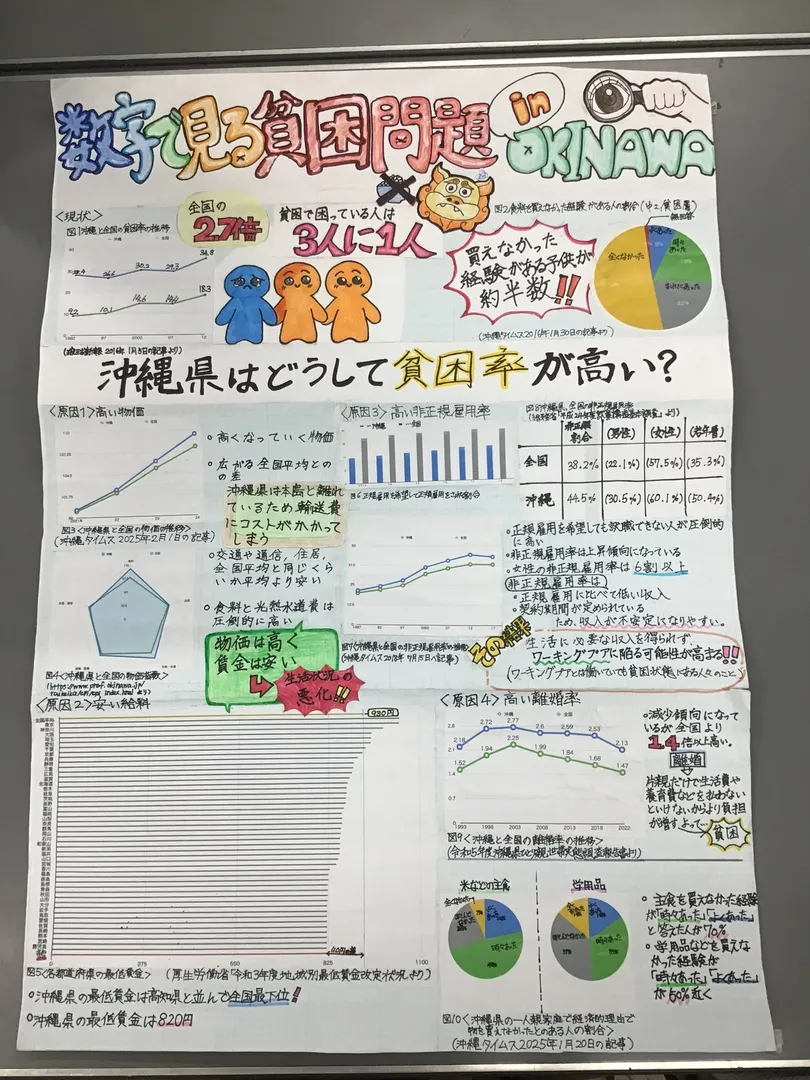 数字で見る貧困問題
in
OKINAWA
<現状>
図1沖縄と全国の貧困率の推移
沖縄 全国
34.8
30.2
29.3
18.3
10.1
14.6
全国の
2.7倍
貧困で困っている人は
3人に1人
買えなかった
経験がある子供が
約半数!!
図2.食料を買えなかった経験がある人の割合(中2,貧困層)
無回答
よくあった
時々
あった
まれにあった
全くなかった
(沖縄タイムス2016年1月30日の記事より)
沖縄県はどうして貧困率が高い?
<原因1>高い物価
図3<沖縄県と全国の物価の推移>
(沖縄タイムス 2025年2月1日の記事)
○高くなっていく物価
○広がる全国平均との
の差
沖縄県は本島と離れ
ているため輸送費
にコストがかかって
しまう
○交通や通信, 住居,
全国平均と同じくら
いか平均より安い
○食料と光熱水道費は
圧倒的に高い
図4<沖縄県と全国の物価指数>
物価は高く
賃金は安い
生活状況の
悪化!!
<原因3>高い非正規雇用率
沖縄 全国
図6正規雇用を希望して正規雇用をつく割合
図7<沖縄県と全国の非正規雇用率の推移>
(沖縄タイムス2018年7月15日の記事)
図8沖縄県, 全国の非正規雇用率
非正規
割合 (男性) (女性) (若年層)
全国 38.2% (22.1%) (57.5%) (35.3%)
沖縄 44.5% (30.5%) (60.1%) (50.4%)
○正規雇用を希望しても就職できない人が圧倒的
に高い
○非正規雇用率は上昇傾向になっている
○女性の非正規雇用率は6割以上
非正規雇用率は
○正規雇用に比べて低い収入
○契約期間が定められている
ため,収入が不安定になりやすい。
その結果
生活に必要な収入を得られず,
ワーキングプアに陥る可能性が高まる!!
(ワーキングプアとは働いていても貧困状態にある人々のこと)
<原因2>安い給料
930円
0 275 550 825 1100
図5<各都道府県の最低賃金> (厚生労働省「令和3年度地域別最低賃金改定状況」より)
○沖縄県の最低賃金は高知県と並んで全国最下位!
○沖縄県の最低賃金は820円
<原因4>高い離婚率
沖縄 全国
2.8
2.1
1.4
0.7
0
2.18 2.72 2.77 2.6 2.59 2.53 2.13
1.52 1.94 2.25 1.99 1.84 1.68 1.47
1993 1998 2003 2008 2013 2018 2022
図9<沖縄と全国の離婚率の推移>
○減少傾向になって
いるが全国より
1.4倍以上高い。
離婚
片親だけで生活費や
養育費などを払わない
といけないからより負担
が増す,よって…
貧困
米などの主食
学用品
図10<沖縄県の一人親家庭で経済的理由で
物を買えなかったことのある人の割合>
(沖縄タイムス2025年1月20日の記事)
○主食を買えなかった経験
が「時々あった」「よくあった」
と答えた人が70%
○学用品などを買えな
かった経験が
「時々あった」「よくあった」
が50%近く